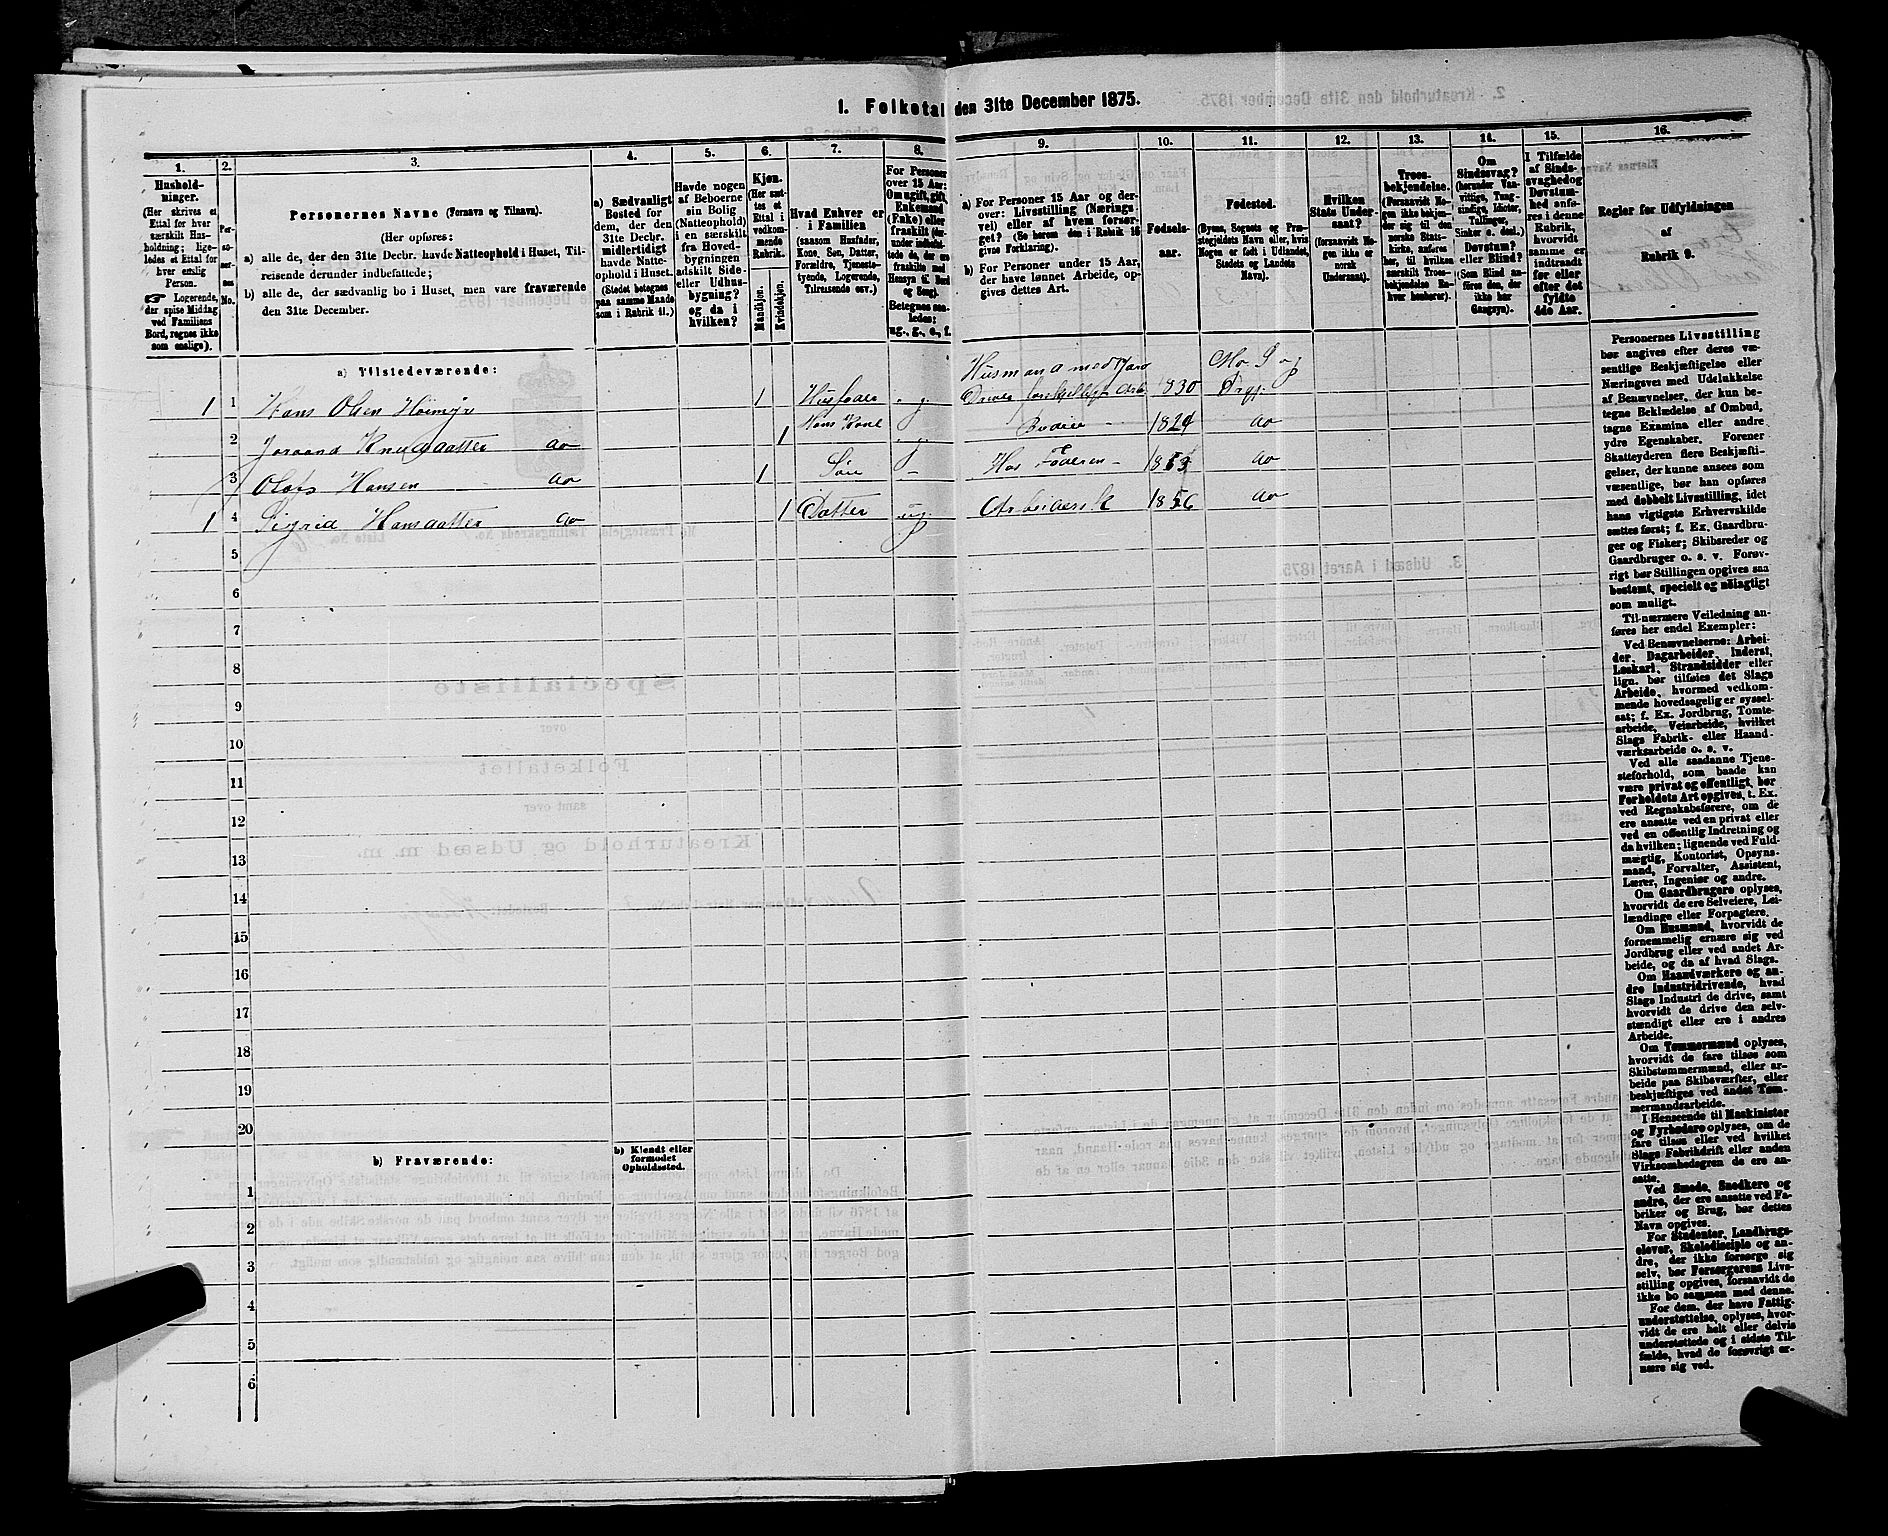 1. Folketal den 31te December 1875.
1.
Hushold-
ninger.
(Her skrives et
Ettal for hver
særskilt Hus-
holdning; lige-
ledes et Ettal for
hver enslig
Person.
☞ Logerende,
der spise Middag
ved Familiens
Bord, regnes ikke
som enslige).
2.
Per-
so-
ner-
nes
No.
3.
Personernes Navne (Fornavn og Tilnavn).
(Her opføres:
a) alle de, der den 31te Decbr. havde Natteophold i Huset, Til-
reisende derunder indbefattede;
b) alle de, der sædvanlig bo i Huset, men vare fraværende
den 31te December.
4.
a) Sædvanligt
Bosted for
dem, der den
31te Decbr.
midlertidigt
havde Natte-
ophold i Huset.
(Stedet betegnes
paa samme Maade
som i Rubrik 11.)
5.
Havde nogen
af Beboerne
sin Bolig
(Natteophold)
i en særskilt
fra Hoved-
bygningen
adskilt Side-
eller Udhus-
bygning?
og da i
hvilken?
6.
Kjøn.
(Her sæt-
tes et
Ettal i
vedkom-
mende
Rubrik.)
Mandkjøn.
Kvindekjøn.
7.
Hvad Enhver er
i Familien
(saasom Husfader,
Kone, Søn, Datter,
Forældre, Tjeneste-
tyende, Logerende,
Tilreisende osv.)
8.
For Personer
over 15 Aar:
Om ugift, gift,
Enkemand
(Enke) eller
fraskilt
Betegnes saa-
ledes:
ug., g., e., f.
9.
a) For Personer 15 Aar og der-
over: Livsstilling (Nærings-
vei) eller af hvem forsør-
get? (Se herom den i Rubrik 16
givne Forklaring).
b) For Personer under 15 Aar,
der have lønnet Arbeide, op-
gives dettes Art.
10.
Fødsels-
aar.
11.
Fødested.
(Byens, Sognets og Præ-
stegjeldets Navn eller, hvis
Nogen er født i Udlandet,
Stedets og Landets
Navn).
12.
Hvilken
Stats Under-
saat?
(forsaavidt No-
gen ikke er
norsk
Undersaat).
13.
Troes-
bekjendelse.
(Forsaavidt No-
gen ikke bekjen-
der sig til den
norske Stats-
kirke, anføres
her, til hvilken
særskilt Troes-
bekjendelse En-
hver henhører).
14.
Om
Sindssvag?
(herunder Van-
vittige, Tung-
sindige, Idioter,
Tullinger,
Sinker o. desl.)
Døvstum?
eller Blind?
(Som Blind an-
føres den, der
ikke har
Gangsyn).
15.
I Tilfælde
af Sinds-
svaghed og
Døvstum-
hed anfø-
res i denne
Rubrik,
hvorvidt
samme er
indtraadt
før eller
efter det
fyldte
4de Aar.
16.
Regler for Udfyldningen
af
Rubrik 9.
a) Tilstedeværende:
1 1 Hans Olsen Høimyr 1 Husfader g Husmand med Jord 1830
2 Joraand Knudsdatter do 1 Hans Kone g 1824 do
3 Olaf Hansen do 1 Søn - Hos Faderen - do
1 4 Sigrid Hansdatter do 1 Datter ug 1856 do
5
6
7
8
9
10
11
12
13
14
15
16
17
18
19
20
b) Fraværende:
b) Kjendt eller
formodet
Opholdssted.
1
2
3
4
5
6
Personernes Livsstilling
bør angives efter deres væ-
sentlige Beskjæftigelse eller
Næringsvei med Udelukkelse
af Benævnelser, der kun be-
tegne Beklædelse af Ombud,
tagne Examina eller andre
ydre Egenskaber. Forener
Skatteyderen flere Beskjæfti-
gelser, der kunne ansees som
væsentlige, bør han opføres
med dobbelt Livsstilling, idet
hans vigtigste Erhvervskilde
sættes først; f. Ex. Gaardbru-
ger og Fisker; Skibsreder og
Gaardbruger o. s. v. Forøv-
rigt bør Stillingen opgives saa
bestemt, specielt og nøiagtigt
som muligt.
Til nærmere Veiledning an-
føres her endel Exempler:
Ved Benævnelserne: Arbei-
der, Dagarbeider, Inderst,
Løskarl, Strandsidder eller
lign. bør tilføies det Slags
Arbeide, hvormed vedkom-
mende hovedsagelig er syssel-
sat; f. Ex. Jordbrug, Tomte-
arbeide, Veiarbeide, hvilket
Slags Fabrik- eller Haand-
værksarbeide o. s. v.
Ved alle saadanne Tjene-
steforhold, som baade kan
være privat og offentligt, bør
Forholdets Art opgives, t. Ex.
ved Regnskabsførere, om de
ere ansatte ved en privat eller
ved en offentlig Indretning og
da hvilken; lignende ved Fuld-
mægtig, Kontorist, Opsyns-
mand, Forvalter, Assistent,
Lærer, Ingeniør og andre.
Om Gaardbrugere oplyses,
hvorvidt de ere Selveiere, Lei-
lændinge eller Forpagtere.
Om Husmænd, hvorvidt de
fornemmelig ernære sig ved
Jordbrug eller ved andet Ar-
beide, og da af hvad Slags.
Om Haandværkere og an-
dre Industridrivende, hvad
Slags Industri de drive, samt
hvorvidt de drive den selv-
stændigt eller ere i andres
Arbeide.
Om Tømmermænd oplyses,
hvorvidt de fare tilsøs som
Skibstømmermænd, eller ar-
beide paa Skibsværfter, eller
beskjæftiges ved andet Tøm-
mermandsarbeide.
I Henseende til Maskinister
og Fyrbødere oplyses, om de
fare tilsøs eller ved hvilket
Slags Fabrikdrift eller anden
Virksomhedsgren de ere an-
satte.
Ved Smede, Snedkere og
andre, der ere ansatte ved Fa-
briker og Brug, bør dettes
Navn opgives.
For Studenter, Landbrugs-
elever, Skoledisciple og an-
dre, der ikke forsørge sig
selv, bør Forsørgerens Livs-
stilling opgives, forsaavidt de
ikke bo sammen med denne.
For dem, der have Fattig-
understøttelse, oplyses, hvor-
vidt de ere helt eller delvis
understøttede og i sidste Til-
fælde, hvad de forøvrigt er-
nære sig ved.